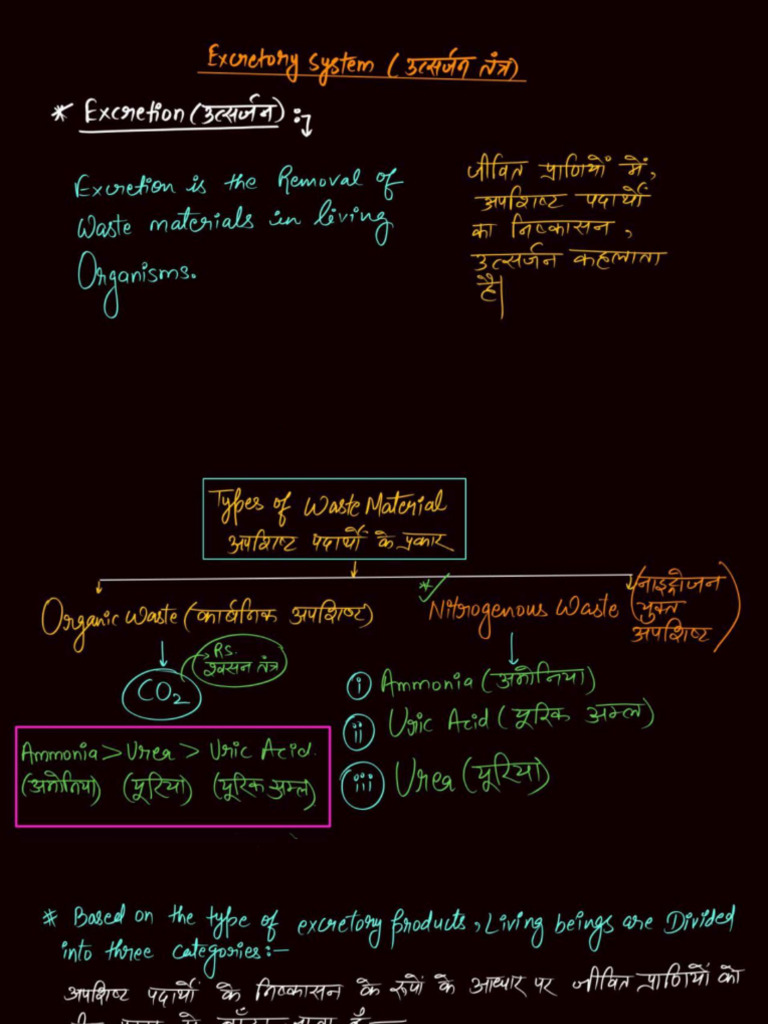 Excretory system (उत्सर्जन तंत्र)
* Excretion (उत्सर्जन) :-
Excretion is the Removal of
Waste materials in living
Organisms.
जीवित प्राणियों में,
अपशिष्ट पदार्थों
का निष्कासन,
उत्सर्जन कहलाता
है|
Types of Waste Material
अपशिष्ट पदार्थों के प्रकार
Organic Waste (कार्बनिक अपशिष्ट)
CO2
Rs.
श्वसन तंत्र
Nitrogenous Waste
(नाइट्रोजन
युक्त
अपशिष्ट)
i Ammonia (अमोनिया)
ii Uric Acid (यूरिक अम्ल)
iii Urea (यूरिया)
Ammonia > Urea > Uric Acid.
(अमोनिया) (यूरिया) (यूरिक अम्ल)
* Based on the type of excretory products, Living beings are Divided
into three categories:-
अपशिष्ट पदार्थों के निष्कासन के रूपों के आधार पर जीवित प्राणियों को